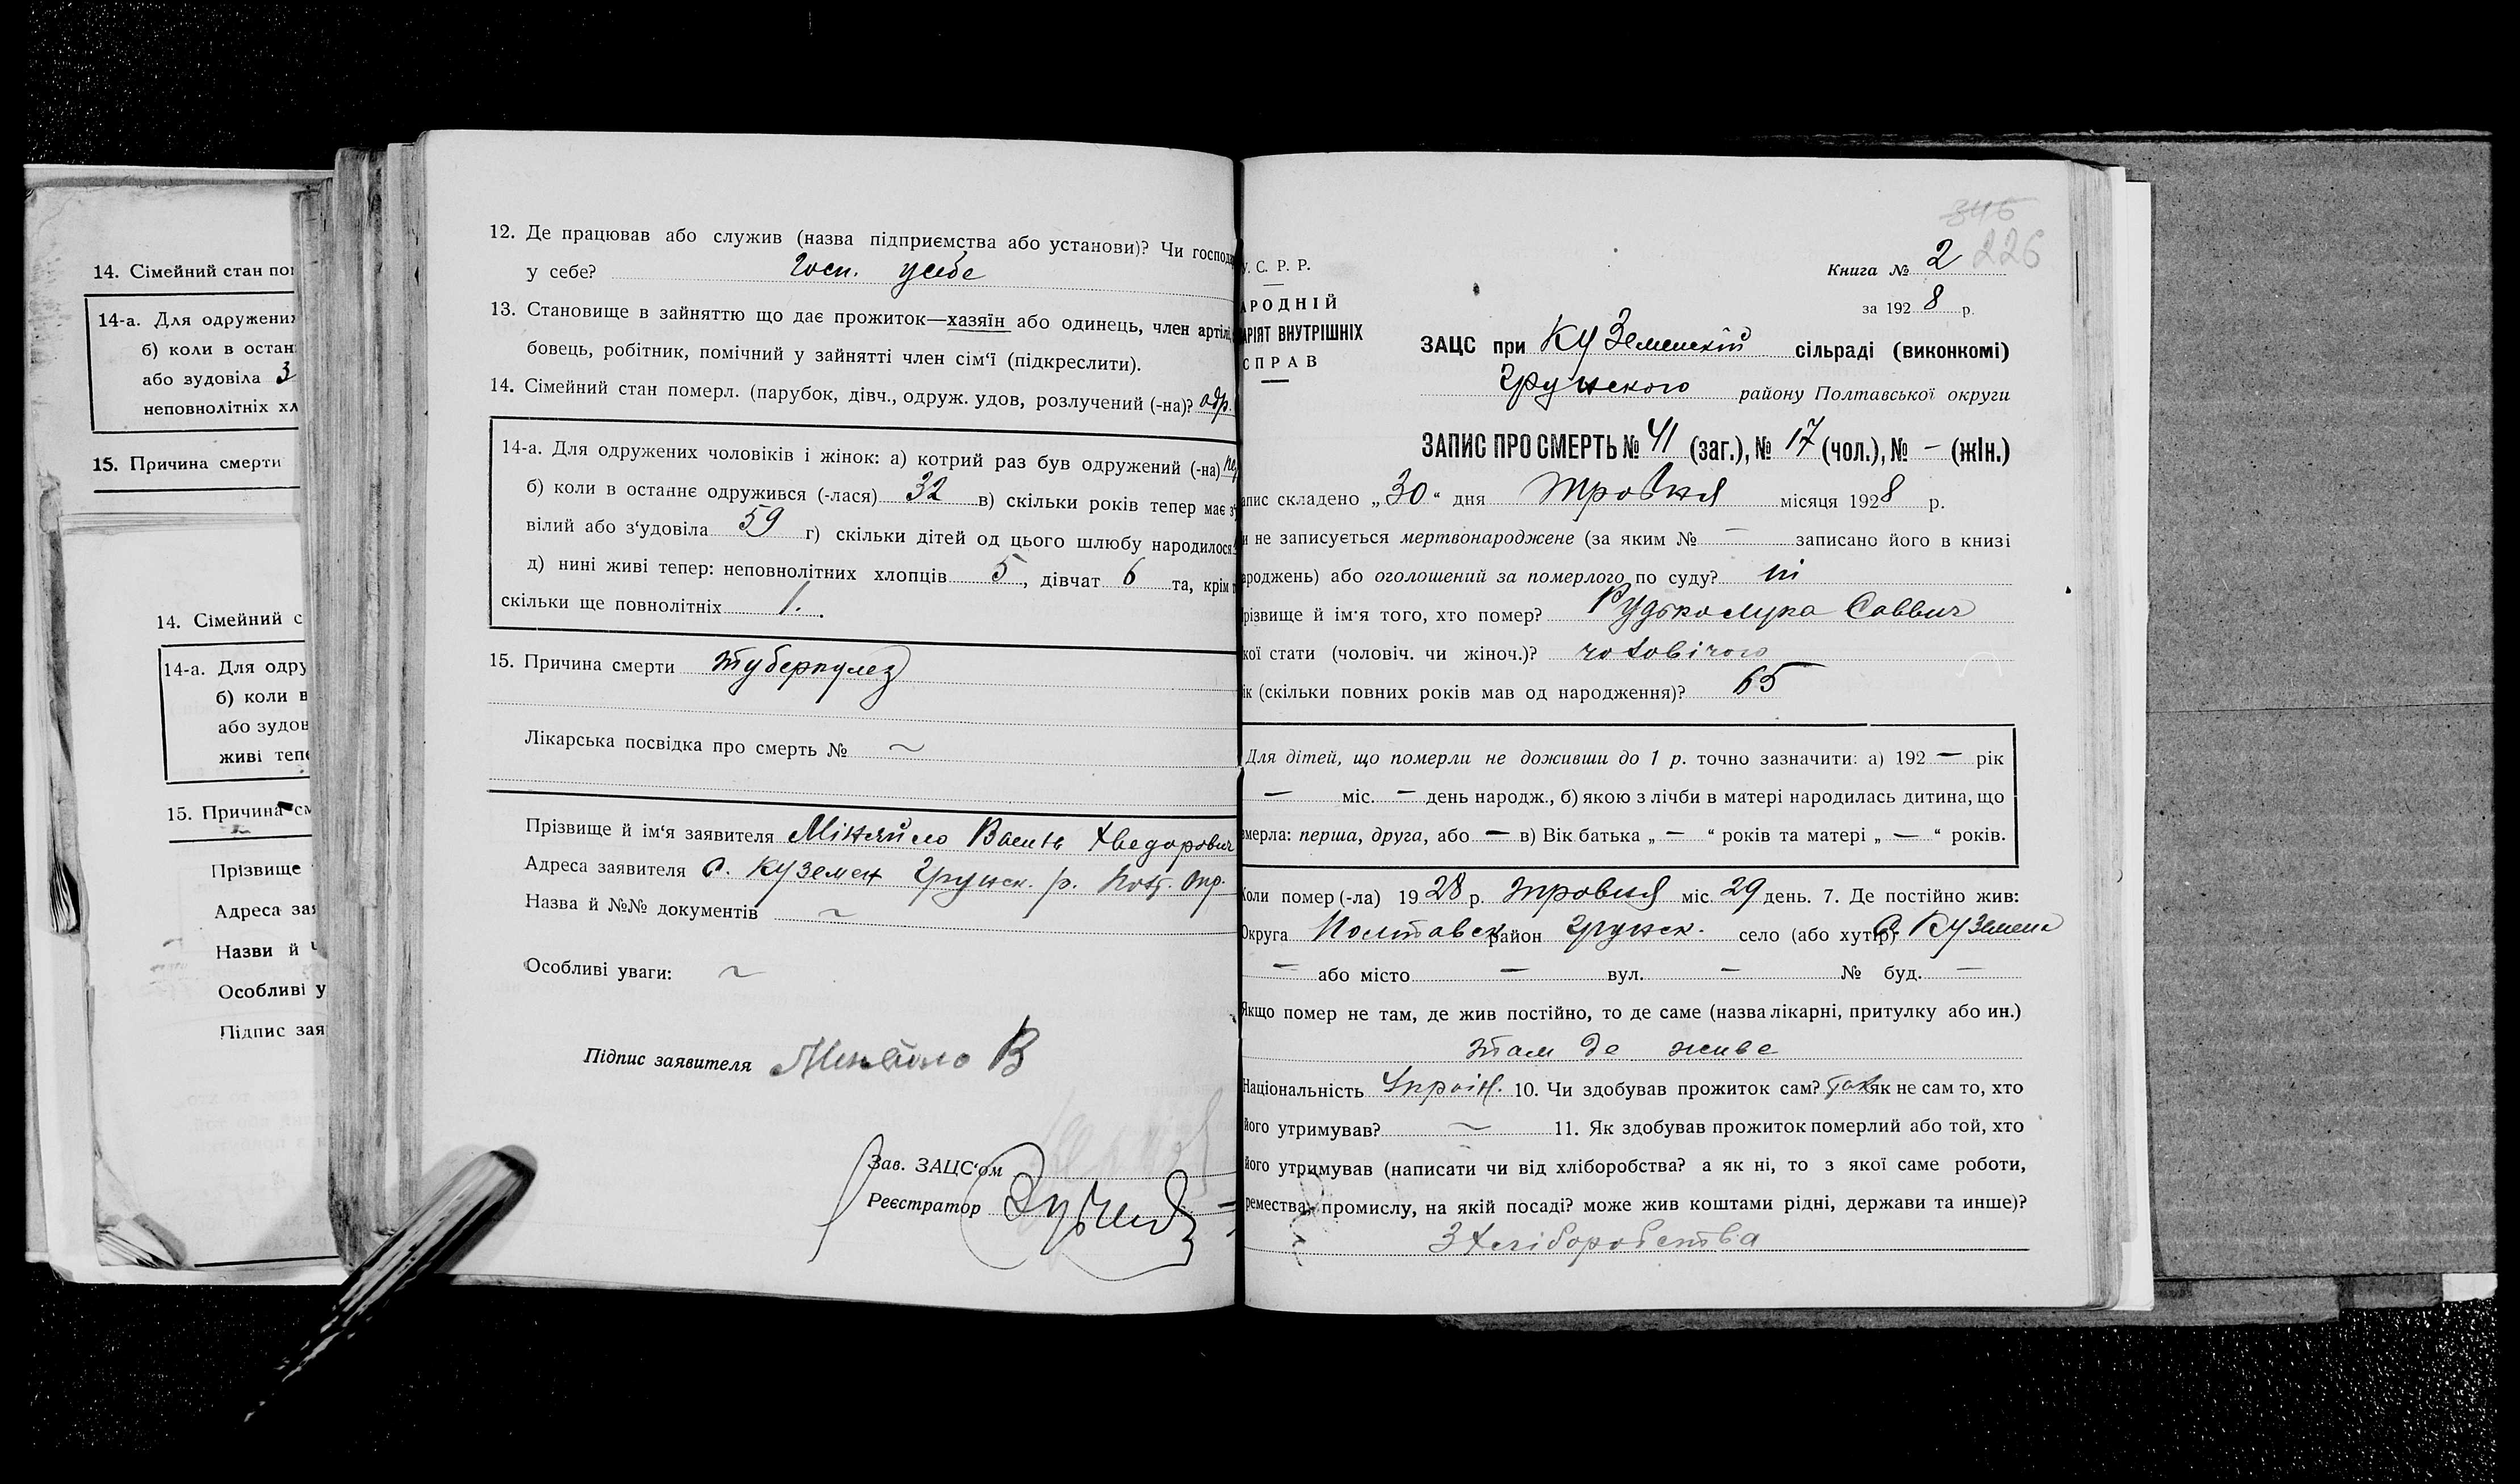 14. Сімейний стан пом
14-а. Для одружених
б) коли в остан
або зудовіла 3
неповнолітніх хл
15. Причина смерти
14. Сімейний с
14-а. Для одру
б) коли в
або зудов
живі тепе
15. Причина см
Прізвище
Адреса зая
Назви й
Особливі у
Підпис зая
12. Де працював або служив (назва підприємства або установи)? Чи господа
у себе? Госп. у себе
13. Становище в зайняттю що дає прожиток—хазяїн або одинець, член артілі,
бовець, робітник, помічний у зайнятті член сім'ї (підкреслити).
14. Сімейний стан померл. (парубок, дівч., одруж. удов, розлучений (-на)? одр.
14-а. Для одружених чоловіків і жінок: а) котрий раз був одружений (-на) пер
б) коли в останнє одружився (-лася) 32 в) скільки років тепер має з'у
вілий або з'удовіла 59 г) скільки дітей од цього шлюбу народилося
д) нині живі тепер: неповнолітних хлопців 5, дівчат 6 та, крім т
скільки ще повнолітніх 1.
15. Причина смерти туберкулез
Лікарська посвідка про смерть № ~
Прізвище й ім'я заявителя Міняйло Василь Хведорович
Адреса заявителя С. Куземен Грунськ. р. Полт. Окр.
Назва й №№ документів ~
Особливі уваги: ~
Підпис заявителя Миняйло В
Зав. ЗАЦС'ом
Реєстратор
345
226
У. С. Р. Р.
АРОДНІЙ
АРІЯТ ВНУТРІШНІХ
СПРАВ
Книга № 2
за 192 8 р.
ЗАЦС при Куземенскій сільраді (виконкомі)
Грунского району Полтавської округи
ЗАПИС ПРО СМЕРТЬ № 41 (заг.), № 17 (чол.), № – (жін.)
апис складено „30“ дня травня місяця 1928 р.
и не записується мертвонароджене (за яким № — записано його в книзі
ароджень) або оголошений за померлого по суду? ні
різвище й ім'я того, хто помер? Рудько Лука Саввич
кої стати (чоловіч. чи жіноч.)? чоловічого
ік (скільки повних років мав од народження)? 65
Для дітей, що померли не доживши до 1 р. точно зазначити: а) 192 — рік
— міс. — день народж., б) якою з лічби в матері народилась дитина, що
вмерла: перша, друга, або — в) Вік батька „ — “ років та матері „ — “ років.
Коли помер (-ла) 19 28 р. травня міс. 29 день. 7. Де постійно жив:
Округа Полтавск район Грунск. село (або хутір) С. Куземен
— або місто — вул. — № буд. —
Якщо помер не там, де жив постійно, то де саме (назва лікарні, притулку або ин.)
там де живе
Національність Україн. 10. Чи здобував прожиток сам? Так як не сам то, хто
його утримував? ~ 11. Як здобував прожиток померлий або той, хто
його утримував (написати чи від хліборобства? а як ні, то з якої саме роботи,
ремества, промислу, на якій посаді? може жив коштами рідні, держави та инше)?
З хліборобства